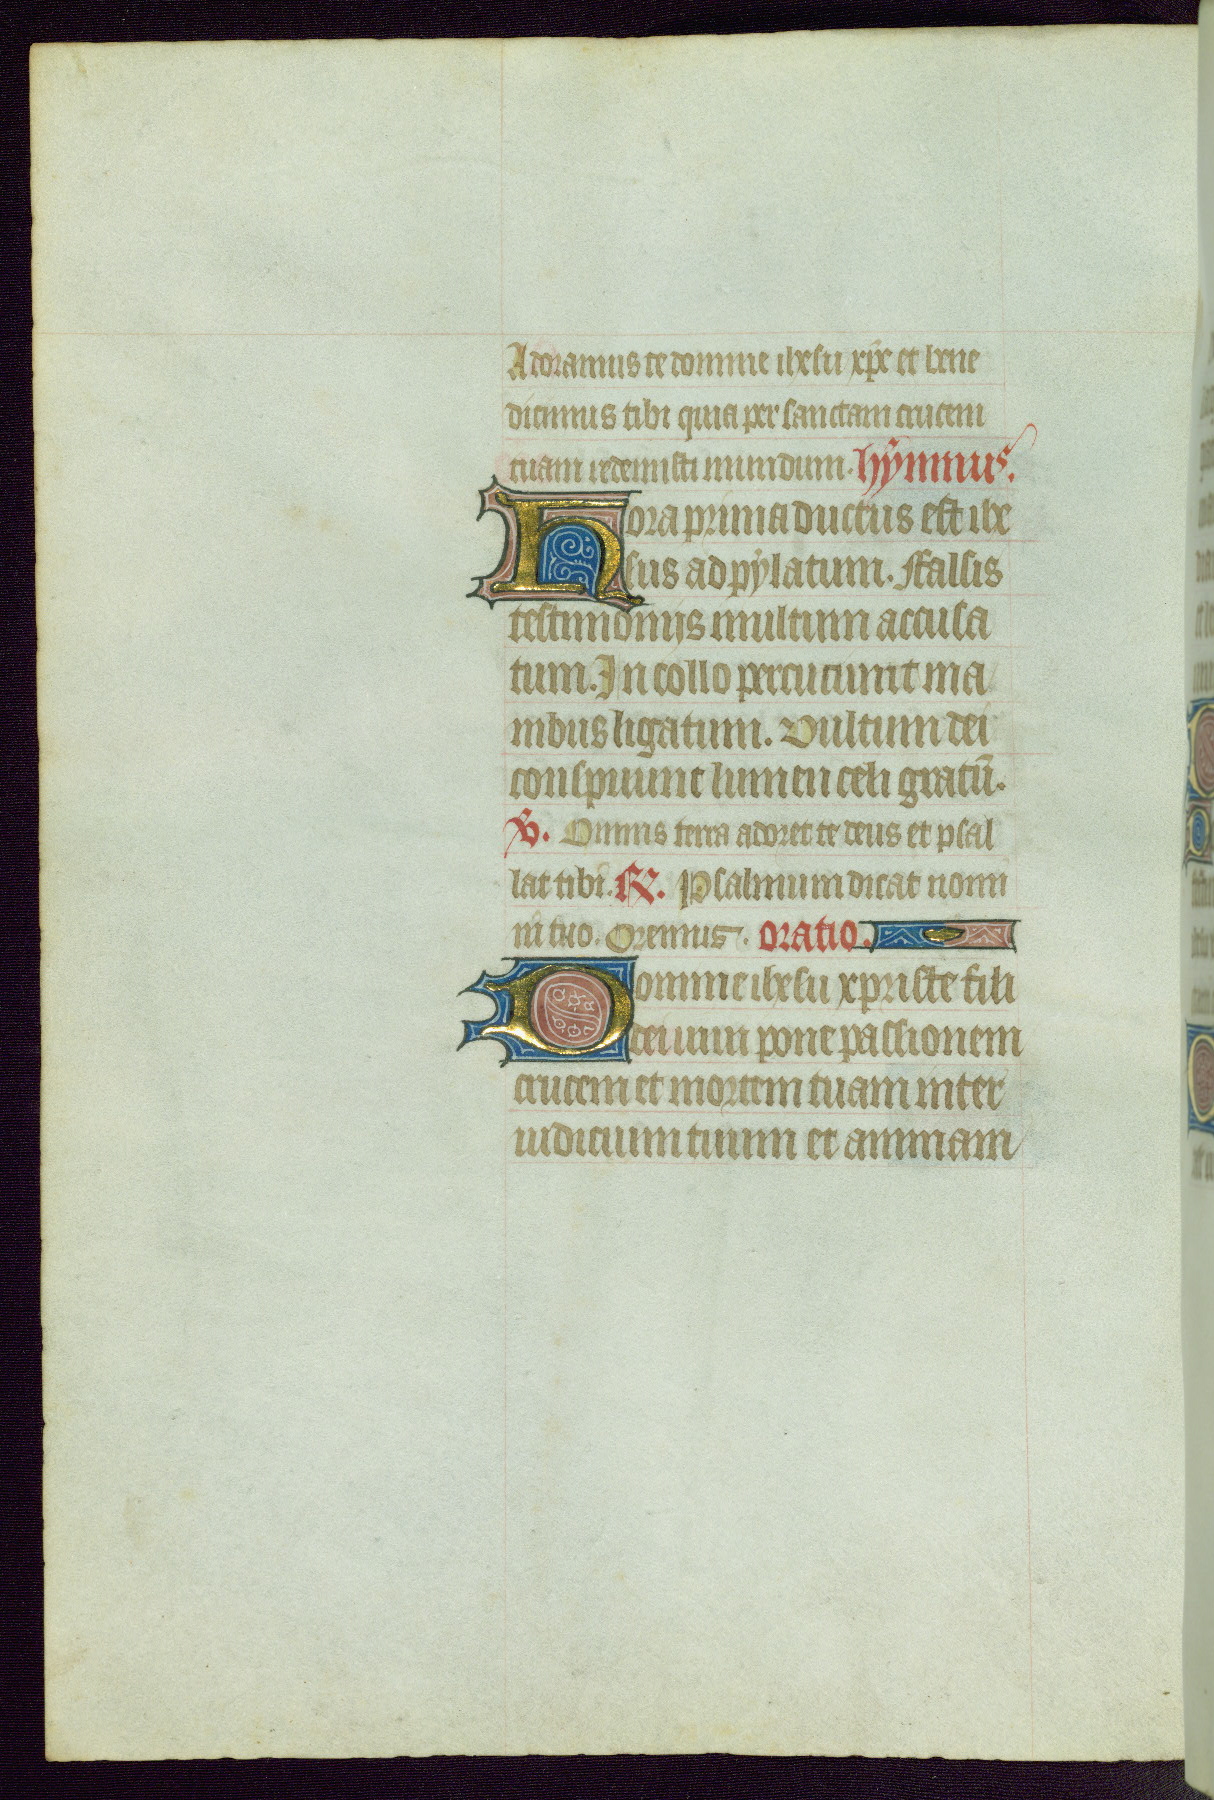 Adoramus te domine ihesu xpe et bene
dicimus tibi quia per sanctam crucem
tuam redemisti mundum. hymnus.
Hora prima ductus est ihe
sus ad pylatum. ffalsis
testimonijs multum accusa
tum. In collo percutiunt ma
nibus ligatum. Vultum dei
conspuunt lumen celi gratū.
V. Omnis terra adoret te deus et psal
lat tibi. R. Psalmum dicat nomi
ni tuo. Oremus. oratio.
Domine ihesu xpriste fili
dei uiui pone passionem
crucem et mortem tuam inter
iudicium tuum et animam